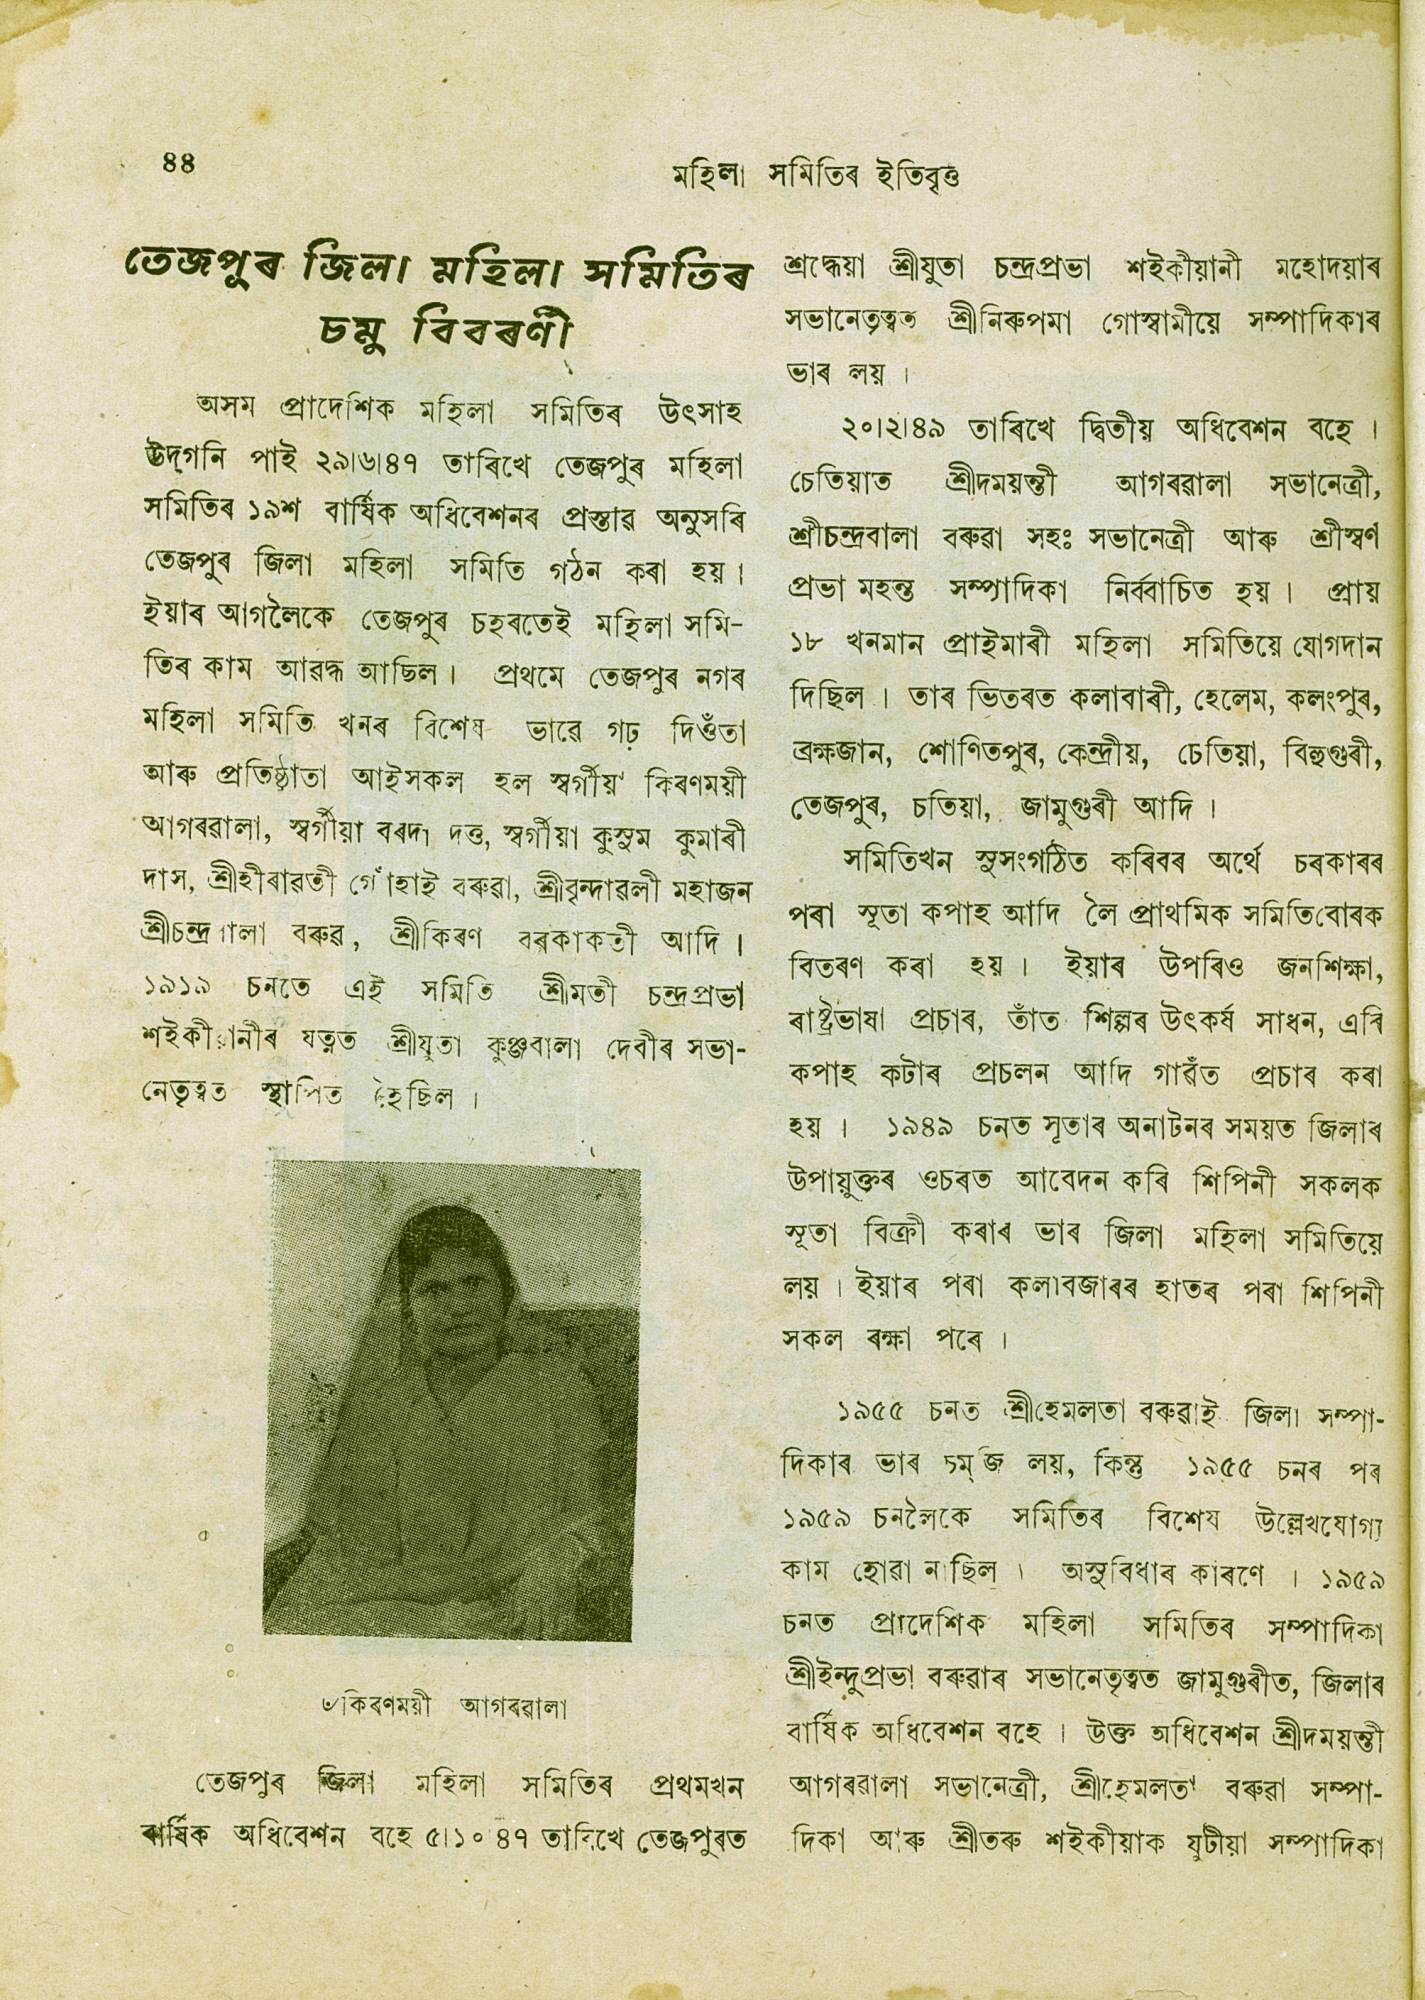 ৪৪
মহিলা সমিতিৰ ইতিবৃত্ত
তেজপুৰ জিলা মহিলা সমিতিৰ
চমু বিবৰণী
অসম প্ৰাদেশিক মহিলা সমিতিৰ উৎসাহ
উদ্‌গনি পাই ২৯।৬।৪৭ তাৰিখে তেজপুৰ মহিলা
সমিতিৰ ১৯শ বাৰ্ষিক অধিবেশনৰ প্ৰস্তাৱ অনুসৰি
তেজপুৰ জিলা মহিলা সমিতি গঠন কৰা হয়।
ইয়াৰ আগলৈকে তেজপুৰ চহৰতেই মহিলা সমি-
তিৰ কাম আৱদ্ধ আছিল। প্ৰথমে তেজপুৰ নগৰ
মহিলা সমিতি খনৰ বিশেষ ভাৱে গঢ় দিওঁতা
আৰু প্ৰতিষ্ঠাতা আইসকল হল স্বৰ্গীয়া কিৰণময়ী
আগৰৱালা, স্বৰ্গীয়া বৰদা দত্ত, স্বৰ্গীয়া কুসুম কুমাৰী
দাস, শ্ৰীহীৰাৱতী গোঁহাই বৰুৱা, শ্ৰীবৃন্দাৱলী মহাজন
শ্ৰীচন্দ্ৰবালা বৰুৱ, শ্ৰীকিৰণ বৰকাকতী আদি।
১৯১৯ চনতে এই সমিতি শ্ৰীমতী চন্দ্ৰপ্ৰভা
শইকীয়ানীৰ যত্নত শ্ৰীযুতা কুঞ্জবালা দেবীৰ সভা-
নেতৃত্বত স্থাপিত হৈছিল।
৺কিৰণময়ী আগৰৱালা
তেজপুৰ জিলা মহিলা সমিতিৰ প্ৰথমখন
বাৰ্ষিক অধিবেশন বহে ৫।১০।৪৭ তাৰিখে তেজপুৰত
শ্ৰদ্ধেয়া শ্ৰীযুতা চন্দ্ৰপ্ৰভা শইকীয়ানী মহোদয়াৰ
সভানেতৃত্বত শ্ৰীনিৰুপমা গোস্বামীয়ে সম্পাদিকাৰ
ভাৰ লয়।
২০।২।৪৯ তাৰিখে দ্বিতীয় অধিবেশন বহে।
চেতিয়াত শ্ৰীদময়ন্তী আগৰৱালা সভানেত্ৰী,
শ্ৰীচন্দ্ৰবালা বৰুৱা সহঃ সভানেত্ৰী আৰু শ্ৰীস্বৰ্ণ
প্ৰভা মহন্ত সম্পাদিকা নিৰ্ব্বাচিত হয়। প্ৰায়
১৮ খনমান প্ৰাইমাৰী মহিলা সমিতিয়ে যোগদান
দিছিল। তাৰ ভিতৰত কলাবাৰী, হেলেম, কলংপুৰ,
ব্ৰহ্মজান, শোণিতপুৰ, কেন্দ্ৰীয়, চেতিয়া, বিহুগুৰী,
তেজপুৰ, চতিয়া, জামুগুৰী আদি।
সমিতিখন সুসংগঠিত কৰিবৰ অৰ্থে চৰকাৰৰ
পৰা সূতা কপাহ আদি লৈ প্ৰাথমিক সমিতিবোৰক
বিতৰণ কৰা হয়। ইয়াৰ উপৰিও জনশিক্ষা,
ৰাষ্ট্ৰভাষা প্ৰচাৰ, তাঁত শিল্পৰ উৎকৰ্ষ সাধন, এৰি
কপাহ কটাৰ প্ৰচলন আদি গাৱঁত প্ৰচাৰ কৰা
হয়। ১৯৪৯ চনত সূতাৰ অনাটনৰ সময়ত জিলাৰ
উপায়ুক্তৰ ওচৰত আবেদন কৰি শিপিনী সকলক
সূতা বিক্ৰী কৰাৰ ভাৰ জিলা মহিলা সমিতিয়ে
লয়। ইয়াৰ পৰা কলাবজাৰৰ হাতৰ পৰা শিপিনী
সকল ৰক্ষা পৰে।
১৯৫৫ চনত শ্ৰীহেমলতা বৰুৱাই জিলা সম্পা-
দিকাৰ ভাৰ লয়, কিন্তু ১৯৫৫ চনৰ পৰ
১৯৫৯ চনলৈকে সমিতিৰ বিশেষ উল্লেখযোগ্য
কাম হোৱা নাছিল। অসুবিধাৰ কাৰণে। ১৯৫৯
চনত প্ৰাদেশিক মহিলা সমিতিৰ সম্পাদিকা
শ্ৰীইন্দুপ্ৰভা বৰুৱাৰ সভানেতৃত্বত জামুগুৰীত, জিলাৰ
বাৰ্ষিক অধিবেশন বহে। উক্ত অধিবেশন শ্ৰীদময়ন্তী
আগৰৱালা সভানেত্ৰী, শ্ৰীহেমলতা বৰুৱা সম্পা-
দিকা আৰু শ্ৰীতৰু শইকীয়াক যুটীয়া সম্পাদিকা